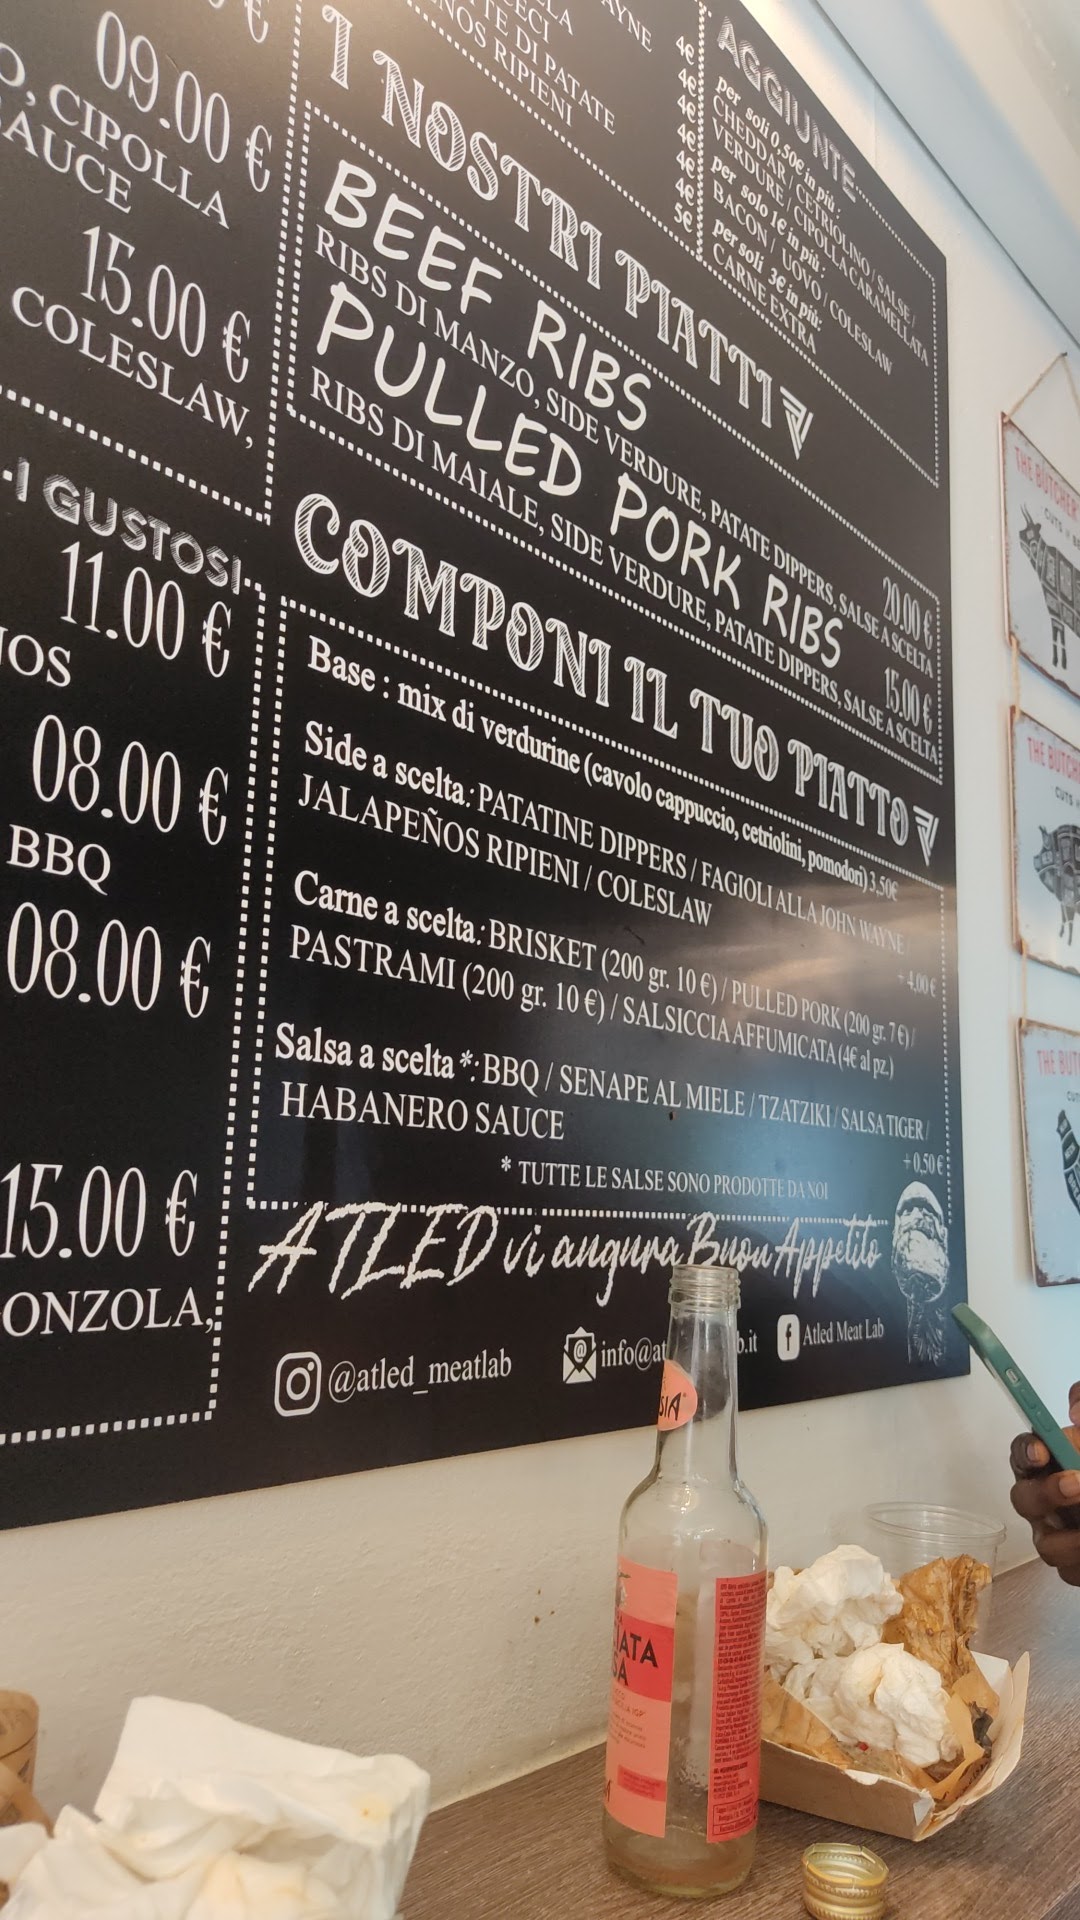 €
09.00 €
O, CIPOLLA
SAUCE
15.00 €
COLESLAW,
I GUSTOSI
11.00 €
NOS
08.00 €
BBQ
08.00 €
15.00 €
ONZOLA,
WAYNE
CECI
DI PATATE
RIPIENI
4€
4€
4€
4€
4€
4€
5€
AGGIUNTE
per soli 0,50€ in più:
CHEDDAR / CETRIOLINO / SALSE /
VERDURE / CIPOLLA CARAMELLATA
per solo 1€ in più:
BACON / UOVO / COLESLAW
per soli 3€ in più:
CARNE EXTRA
I NOSTRI PIATTI
BEEF RIBS 20.00 €
RIBS DI MANZO, SIDE VERDURE, PATATE DIPPERS, SALSE A SCELTA
PULLED PORK RIBS 15.00 €
RIBS DI MAIALE, SIDE VERDURE, PATATE DIPPERS, SALSE A SCELTA
COMPONI IL TUO PIATTO
Base : mix di verdurine (cavolo cappuccio, cetriolini, pomodori) 3,50€
Side a scelta: PATATINE DIPPERS / FAGIOLI ALLA JOHN WAYNE /
JALAPEÑOS RIPIENI / COLESLAW
+ 4,00€
Carne a scelta: BRISKET (200 gr. 10 €) / PULLED PORK (200 gr. 7 €) /
PASTRAMI (200 gr. 10 €) / SALSICCIA AFFUMICATA (4€ al pz.)
Salsa a scelta *: BBQ / SENAPE AL MIELE / TZATZIKI / SALSA TIGER /
HABANERO SAUCE
+ 0,50 €
* TUTTE LE SALSE SONO PRODOTTE DA NOI
ATLED vi augura Buon Appetito
@atled_meatlab
info@at
b.it
Atled Meat Lab
THE BUTCHER
CUTS
THE BUTCHE
CUTS
THE BUT
SIA
IATA
SA